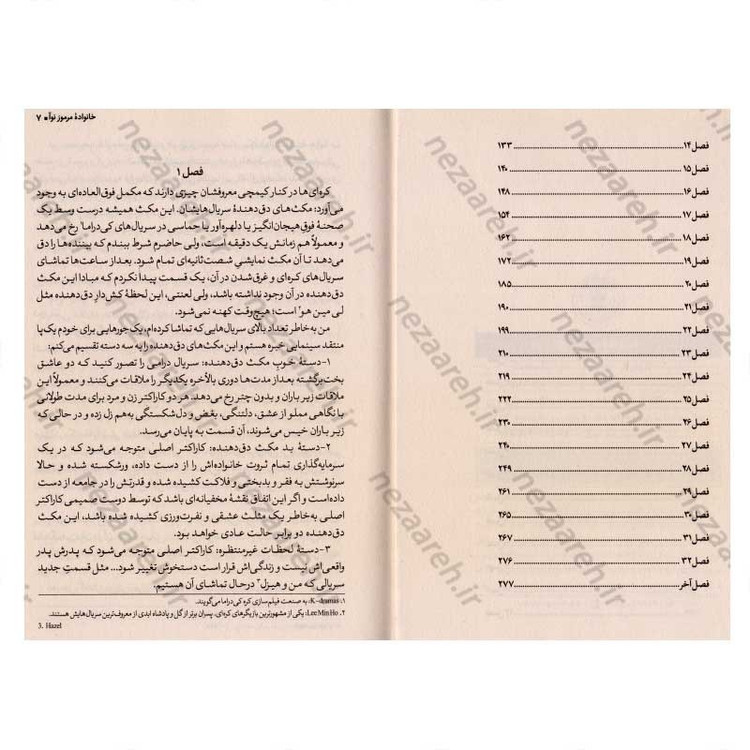 فصل ۱۴ ........ ۱۳۳
فصل ۱۵ ........ ۱۴۰
فصل ۱۶ ........ ۱۴۸
فصل ۱۷ ........ ۱۵۴
فصل ۱۸ ........ ۱۶۲
فصل ۱۹ ........ ۱۷۲
فصل ۲۰ ........ ۱۸۵
فصل ۲۱ ........ ۱۹۰
فصل ۲۲ ........ ۱۹۹
فصل ۲۳ ........ ۲۱۰
فصل ۲۴ ........ ۲۱۹
فصل ۲۵ ........ ۲۲۲
فصل ۲۶ ........ ۲۳۰
فصل ۲۷ ........ ۲۴۰
فصل ۲۸ ........ ۲۴۹
فصل ۲۹ ........ ۲۶۱
فصل ۳۰ ........ ۲۶۵
فصل ۳۱ ........ ۲۶۷
فصل ۳۲ ........ ۲۷۶
فصل آخر ........ ۲۷۷
خانوادهٔ مرموز نوآ • ۷
فصل ۱
کره‌ای‌ها در کنار کیمچی معروفشان چیزی دارند که مکمل فوق‌العاده‌ای به وجود
می‌آورد: مکث‌های دق‌دهندهٔ سریال‌هایشان. این مکث همیشه درست وسط یک
صحنهٔ فوق هیجان‌انگیز یا دلهره‌آور یا حماسی در سریال‌های کی‌دراما۱ رخ می‌دهد
و معمولاً هم زمانش یک دقیقه است، ولی حاضرم شرط ببندم که بیننده‌ها را دق
می‌دهد تا آن مکث نمایشی شصت‌ثانیه‌ای تمام شود. بعد از ساعت‌ها تماشای
سریال‌های کره‌ای و غرق‌شدن در آن، یک قسمت پیدا نکردم که مبادا این مکث
دق‌دهنده در آن وجود نداشته باشد، ولی لعنتی، این لحظهٔ کش‌دار دق‌دهنده مثل
لی مین هو۲ است؛ هیچ‌وقت کهنه نمی‌شود.
من به‌خاطر تعداد بالای سریال‌هایی که تماشا کرده‌ام، یک‌جورهایی برای خودم یک‌پا
منتقد سینمایی خبره هستم و این مکث‌های دق‌دهنده را به سه دسته تقسیم می‌کنم:
۱- دستهٔ خوب مکث دق‌دهنده: سریال درامی را تصور کنید که دو عاشق
بخت‌برگشته بعد از مدت‌ها دوری بالأخره یکدیگر را ملاقات می‌کنند و معمولاً این
ملاقات زیر باران و بدون چتر رخ می‌دهد. هر دو کاراکتر زن و مرد برای مدت طولانی
با نگاهی مملو از عشق، دلتنگی، بغض و دل‌شکستگی به‌هم زل زده و در حالی که
زیر باران خیس می‌شوند، آن قسمت به پایان می‌رسد.
۲- دستهٔ بد مکث دق‌دهنده: کاراکتر اصلی متوجه می‌شود که در یک
سرمایه‌گذاری تمام ثروت خانواده‌اش را از دست داده، ورشکسته شده و حالا
سرنوشتش به فقر و بدبختی و فلاکت کشیده شده و قدرتش را در جامعه از دست
داده است و اگر این اتفاق نقشهٔ مخفیانه‌ای باشد که توسط دوست صمیمی کاراکتر
اصلی به‌خاطر یک مثلث عشقی و نفرت‌ورزی کشیده شده باشد، این مکث
دق‌دهنده دو برابر حالت عادی خواهد بود.
۳- دستهٔ لحظات غیرمنتظره: کاراکتر اصلی متوجه می‌شود که پدرش پدر
واقعی‌اش نیست و زندگی‌اش قرار است دستخوش تغییر شود... مثل قسمت جدید
سریالی که من و هیزل۳ درحال تماشای آن هستیم.
۱. K-dramas: به صنعت فیلم‌سازی کره کی‌دراما می‌گویند.
۲. Lee Min Ho: یکی از مشهورترین بازیگرهای کره‌ای. پسران برتر از گل و پادشاه ابدی از معروف‌ترین سریال‌هایش هستند.
3. Hazel
nezaareh.ir
nezaareh.ir
nezaareh.ir
nezaareh.ir
nezaareh.ir
nezaareh.ir
nezaareh.ir
nezaareh.ir
nezaareh.ir
nezaareh.ir
nezaareh.ir